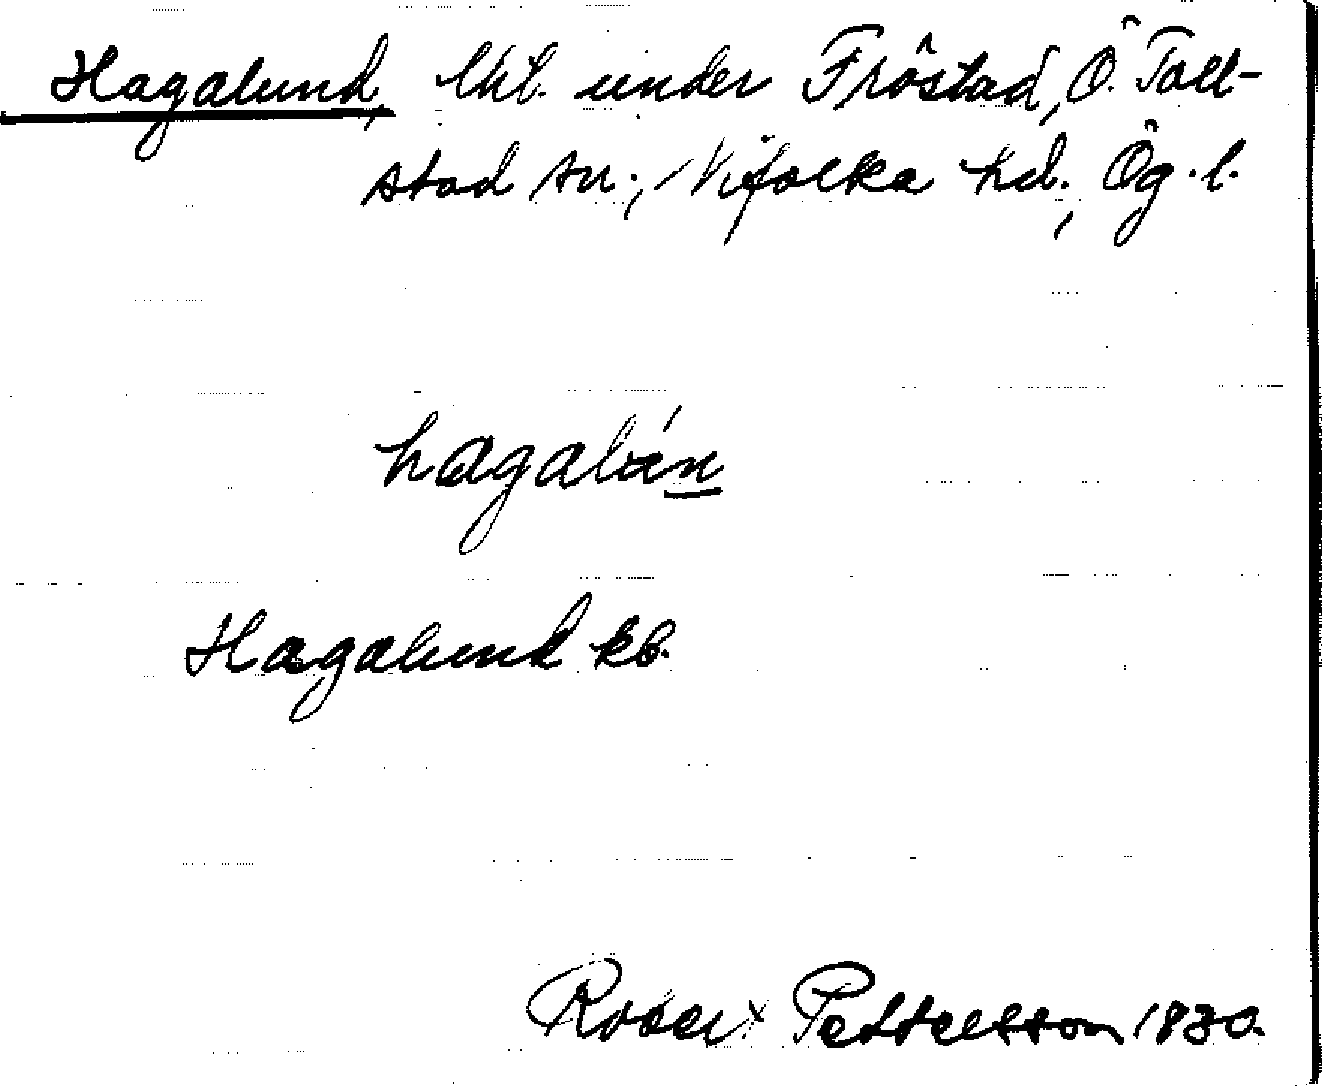 Hagalund, lht. under Fröstad, Ö. Toll-
stad sn., Vifolka hd., Ög. l.
hagalún
Hagalund kb.
Robert Pettersson 1930.